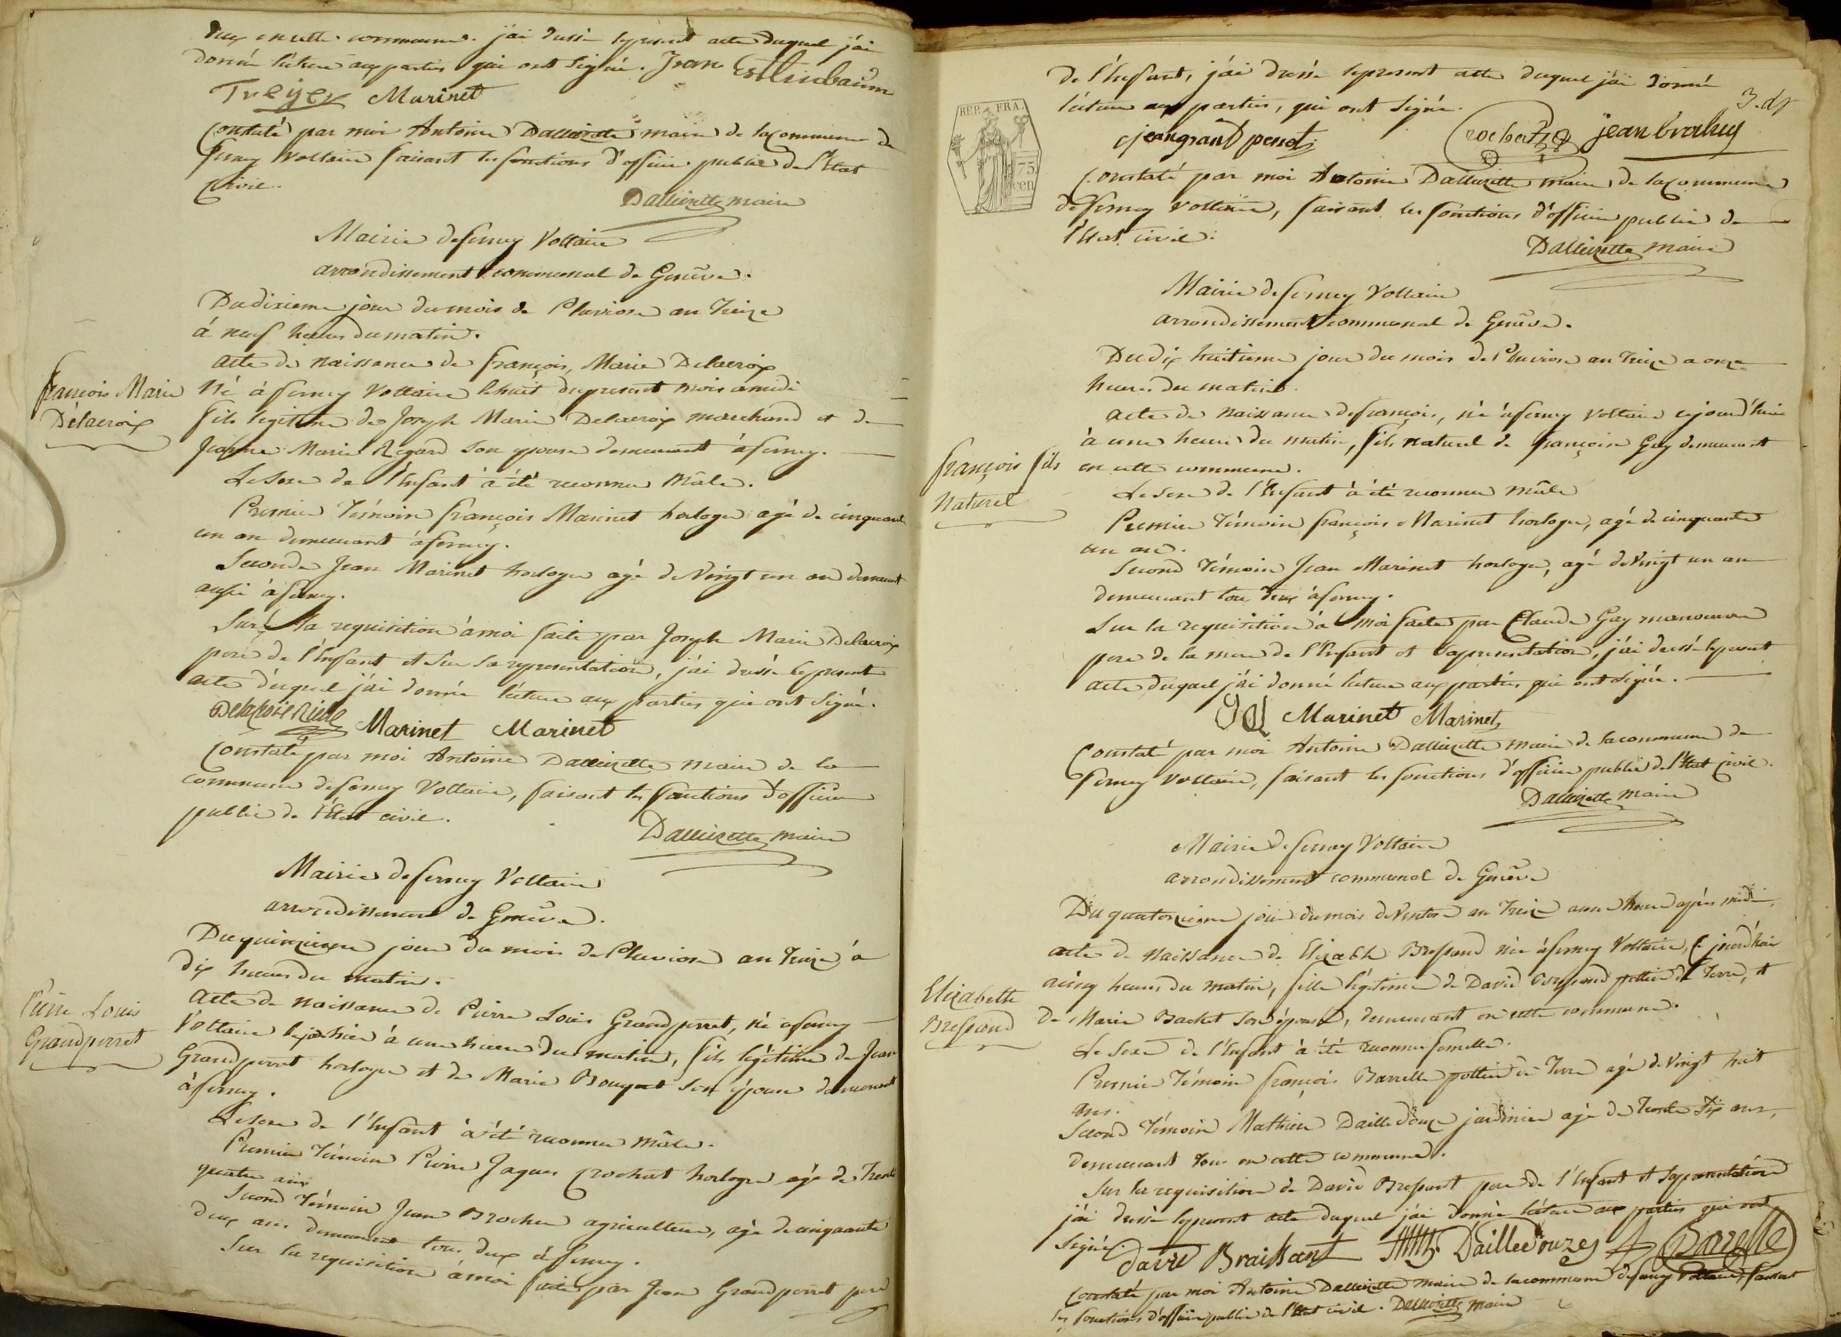 deux en cette commune. j'ai dressé le present acte duquel j'ai
donné lecture aux parties qui ont signé. Jean Esslinbaum
Treyer Marinet
Constaté par moi Antoine Dallizette maire de la commune de
ferney Voltaire faisant les fonctions d'officier public de l'Etat
Civil.
Dallizette maire
Mairie de ferney Voltaire
arrondissement communal de Genève.
Du dixieme jour du mois de Pluviose an Treize
à neuf heures du matin.
acte de naissance de françois, Marie Delacroix
François Marie
Délacroix
né à ferney Voltaire le huit du present mois a midi
fils legitime de Joseph Marie Delacroix marchand et de
Jeanne Marie Regard son epouse demeurant à ferney.
Le sexe de l'Enfant à été reconnu Mâle.
Premier Témoin françois Marinet horloger agé de cinquante
un an demeurant à ferney.
Seconde Jean Marinet horloger agé de Vingt un an demeurant
aussi à ferney.
Sur la requisition à moi faite par Joseph Marie Delacroix
pere de l'Enfant et sur sa representation, j'ai dressé le present
acte duquel j'ai donné lecture aux parties qui ont signé.
Marinet Marinet
Constaté par moi Antoine Dallizette maire de la
commune de ferney Voltaire, faisant les fonctions d'officier
public de l'Etat civil.
Dallizette maire
Mairie de ferney Voltaire
arrondissement de Genève.
Du quinzieme jour du mois de Pluviose an Treize à
dix heures du matin.
Pierre Louis
Grandperret
acte de naissance de Pierre Louis Grandperret, né a ferney
Voltaire le jour hier à une heure du matin, fils légitime de Jean
Grandperret horloger et de Marie Bouquet son épouse demeurant
à ferney.
Le sexe de l'Enfant à été reconnu mâle.
Premier Témoin Pierre Jaques Crochat horloger agé de Trente
quatre ans
Second Témoin Jean Brocher agriculteur, agé de cinquante
deux ans demeurant tous deux à ferney.
Sur la requisition à moi faite par Jean Grandperret pere
3. dp
de l'Enfant, j'ai dressé le present acte duquel j'ai donné
lecture aux parties, qui ont signé.
REP. FRA.
75
cen
jean grand perret
Constaté par moi Antoine Dallizette maire de la commune
de ferney Voltaire, faisant les fonctions d'officier public de
l'Etat civil.
Dallizette maire
Mairie de ferney Voltaire
arrondissement communal de Genève.
Du dix huitieme jour du mois de Pluviose an Treize a onze
heures du matin.
acte de naissance de françois, né à ferney Voltaire cejourd'hui
à une heure du matin, fils naturel de françoise Gay demeurant
en cette commune.
François fils
Naturel
Le sexe de l'Enfant à été reconnu mâle
Premier Témoin françois Marinet horloger, agé de cinquante
un an.
Second Témoin Jean Marinet horloger, agé de Vingt un an
demeurant tous deux à ferney.
Sur la requisition à moi faite par Claude Gay manoeuvre
pere de la mere de l'Enfant et sa presentation, j'ai dressé le present
acte duquel j'ai donné lecture aux parties qui ont signé.
Marinet Marinet
Constaté par moi Antoine Dallizette maire de la commune de
ferney Voltaire, faisant les fonctions d'officier public de l'Etat Civil.
Dallizette maire
Mairie de ferney Voltaire
arrondissement communal de Genève
Du quatorzieme jour du mois de Ventose an Treize a une heure après midi
acte de Naissance de Elizabeth Bressand née à ferney Voltaire, Cejourd'hui
à cinq heures du matin, fille légitime de David Bressand pottier de Terre, et
de Marie Bachet son épouse, demeurant en cette commune.
Elizabethe
Bressand
Le sexe de l'Enfant à été reconnu femelle.
Premier Témoin françois Barrelle pottier de Terre agé de Vingt huit
ans.
Second Témoin Mathieu Dailledouze jardinier agé de Trente six ans,
demeurant Tous en cette commune.
Sur la requisition de David Bressant pere de l'Enfant et sa presentation
j'ai dressé le present acte duquel j'ai donné lecture aux parties qui ont
signé. david Braissant Dailledouze Barelle
Constaté par moi Antoine Dallizette maire de la commune de ferney Voltaire, faisant
les fonctions d'officier public de l'Etat civil. Dallizette maire